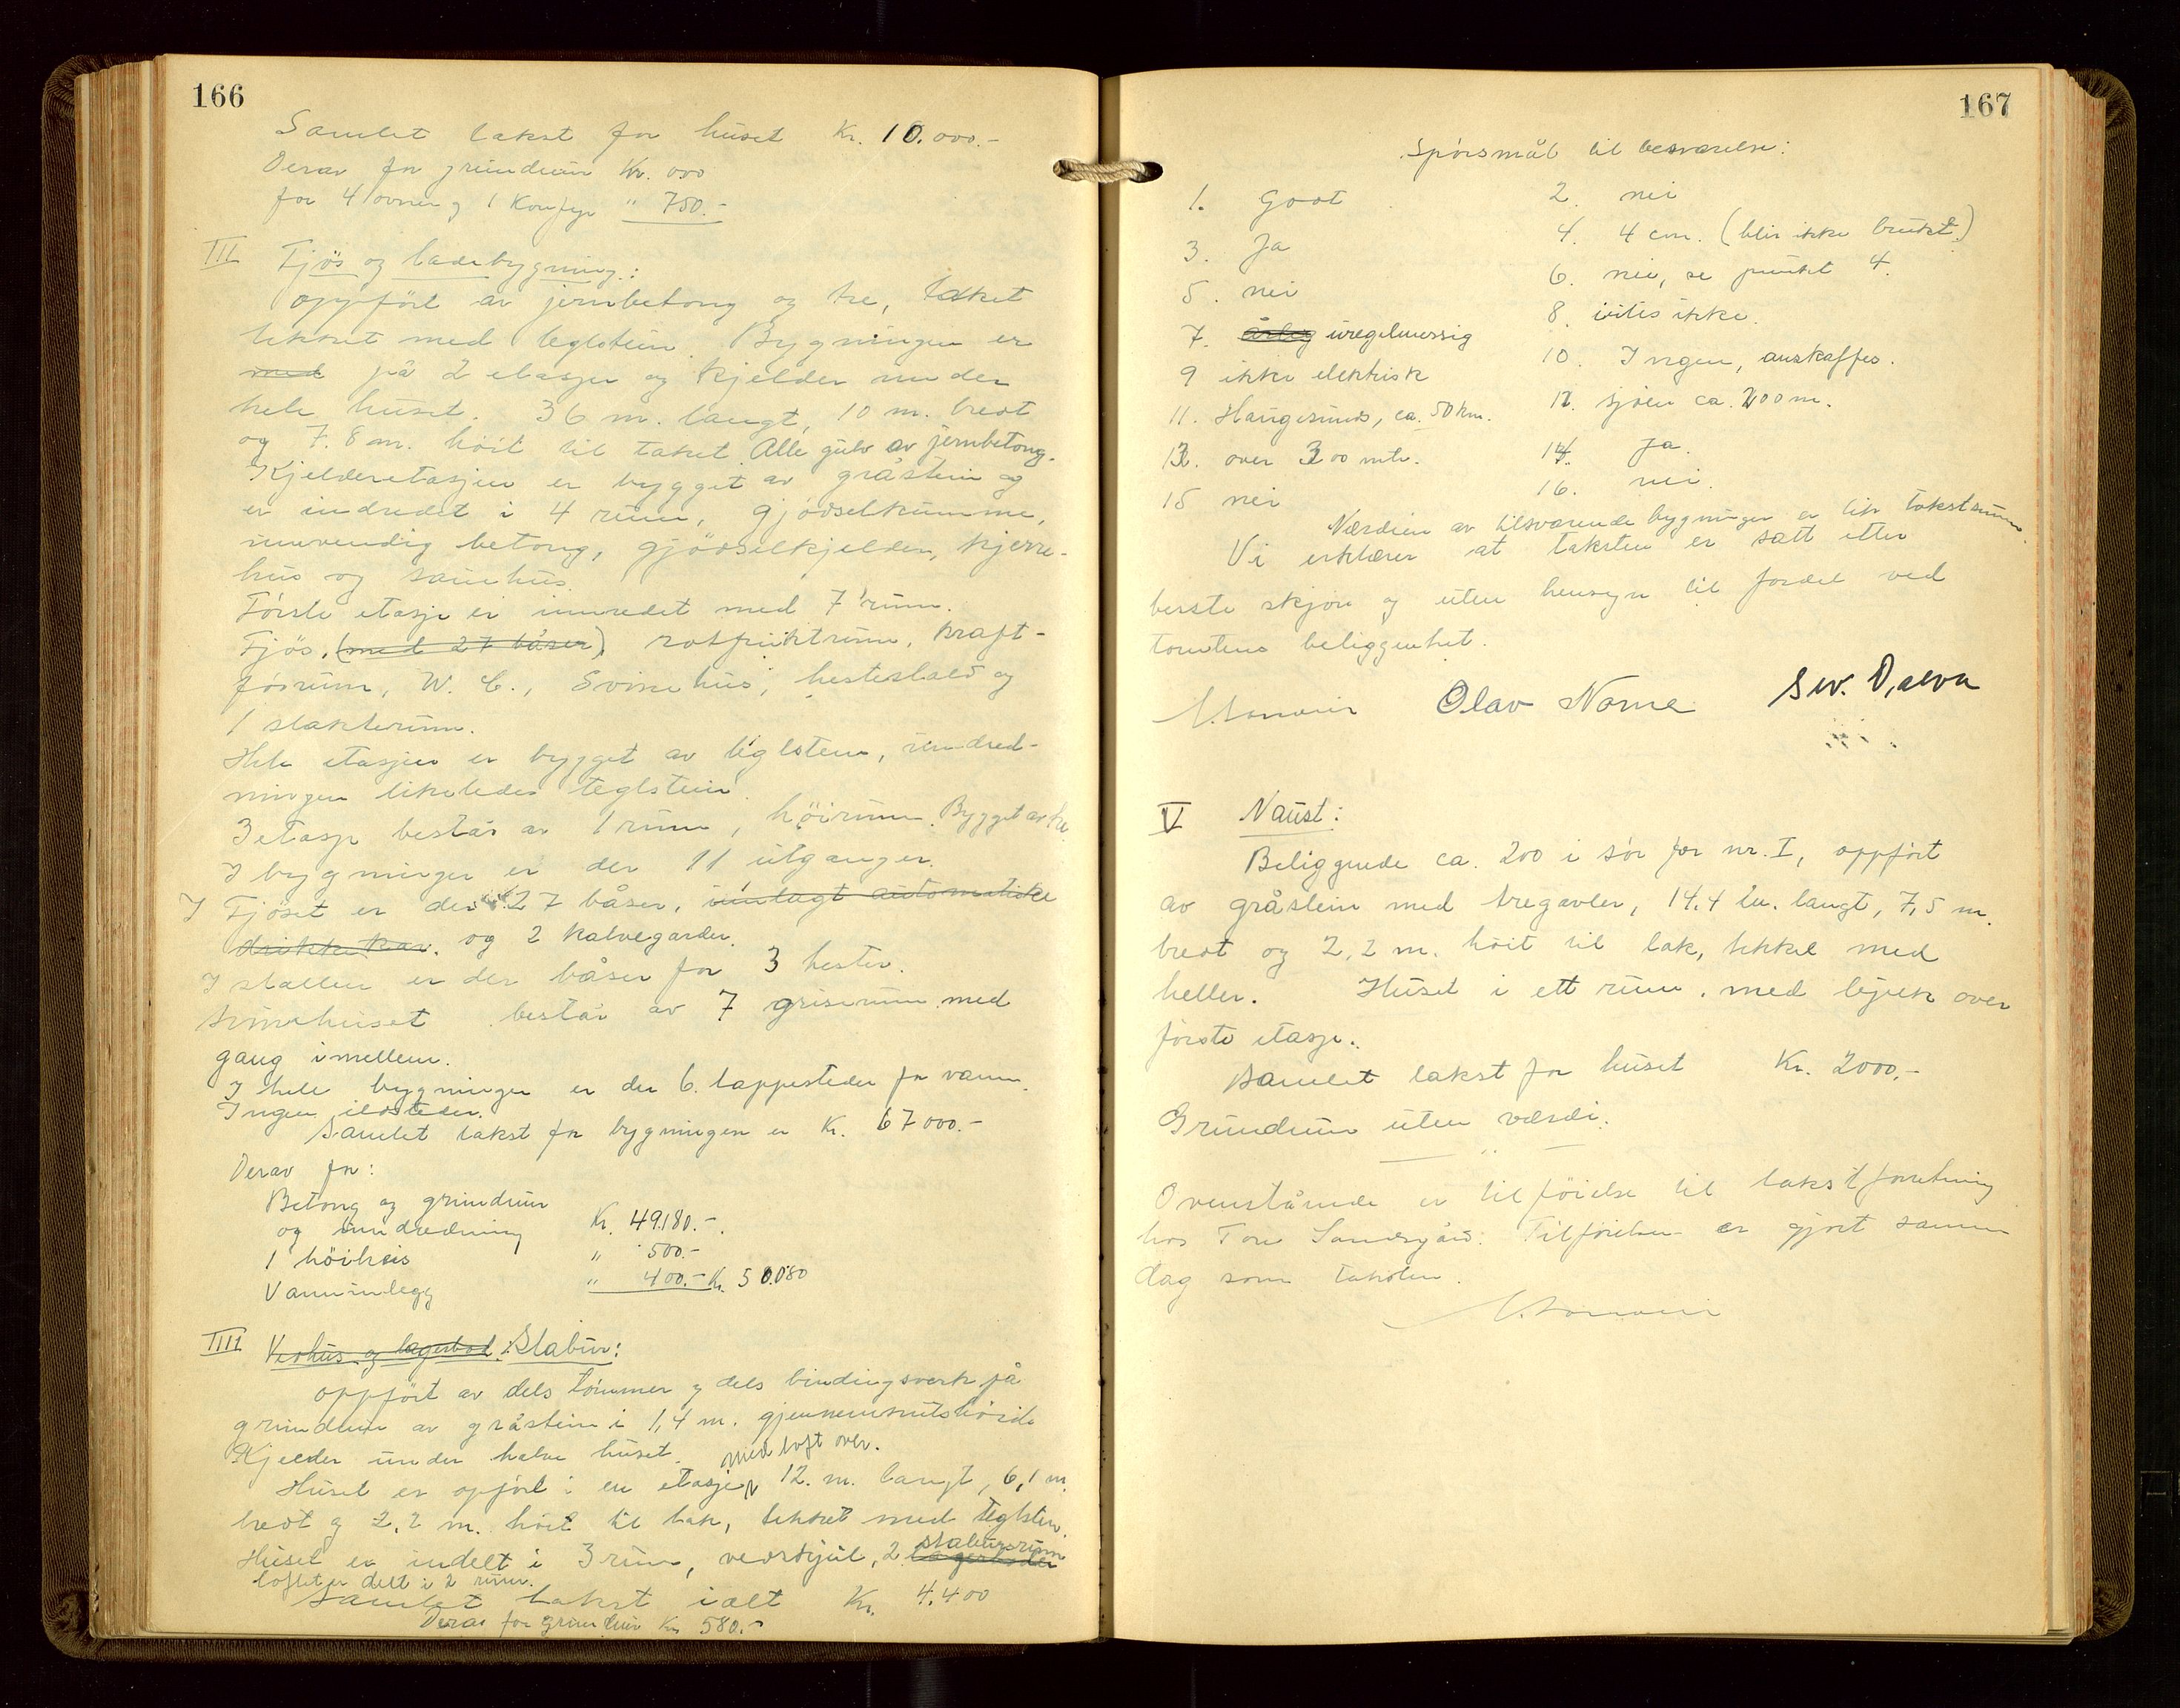 166
Samlet takst for huset Kr. 10.000.-
Derav for grundmur Kr. 000
for 4 ovner og 1 Komfyr " 750.-
III Fjös og ladebygning:
oppfört av jernbetong og tre, taket
tekket med teglstein. Bygningen er
med på 2 etasjer og kjelder under
hele huset. 36 m. langt, 10 m. bredt
og 7.8 m. höit til taket. Alle gulv av jernbetong.
Kjelderetasjen er bygget av gråstein og
er indredet i 4 rum, gjödselkumme,
innvendig betong, gjödselkjelder, kjerre-
hus og sauehus.
Förste etasje er innredet med 7 rum.
Fjös, (med 27 båser), rotfruktrum, kraft-
fórrum, W.C., Svinehus, hestestald og
1 slakterum.
Hele etasjen er bygget av teglstein, inndred-
ningen likeledes teglstein.
3 etasje består av 1 rum, höirum. Bygget av tre
I bygningen er der 11 utganger.
I Fjöset er der 27 båser, innlagt automatiske
drikkekar. og 2 kalvegarder.
I stallen er der båser for 3 hester.
Svinehuset består av 7 griserum med
gang imellem.
I hele bygningen er der 6 tappesteder for vann.
Ingen ildsteder.
Samlet takst for bygningen er Kr. 67000.-
Derav for:
Betong og grundmur
og inndredning Kr. 49180.-
1 höiheis " 500.-
Vanninnlegg " 400.- Kr. 50.080
IIII Vedhus og lagerbod: Stabur:
oppfört av dels tömmer og dels bindingsverk på
grundmur av gråstein i 1,4 m. gjennemsnitshöide
Kjelder under halve huset. med loft over.
Huset er opfört i en etasje 12. m. langt, 6,1 m.
bredt og 2,2 m. höit til tak, tekket med teglstein.
Huset er indelt i 3 rum, vedskjul, 2 lagerboder stabursrum
loftet er delt i 2 rum.
Samlet takst ialt Kr. 4.400
Derav for grundmur Kr 580.-
167
Spörsmål til besvarelse:
1. Godt 2. nei
3. Ja 4. 4 cm. (blir ikke brukt.)
5. nei 6. nei, se punkt 4.
7. årlig uregelmessig 8. vites ikke.
9 ikke elektrisk 10. Ingen, anskaffes.
11. Haugesund, ca. 50 km. 12. sjöen ca. 200 m.
13. over 300 mtr. 14. Ja.
15 nei 16. nei.
Værdien av tilsvarende bygninger er lik takstsum
Vi erklærer at taksten er satt etter
beste skjön og uten hensyn til fordel ved
tomtens beliggenhet.
Olav Norne Siv. Dalva
V Naust:
Beliggende ca. 200 i sör for nr. I, oppfört
av gråstein med tregavler, 14.4 m. langt, 7,5 m.
bredt og 2,2 m. höit til tak, tekket med
heller. Huset i ett rum, med bjelker over
förste etasje.
Samlet takst for huset Kr. 2000.-
Grundmur uten værdi.
Ovenstående er tilföielse til takstforretning
hos Tore Sandsgård. Tilföielsen er gjort samme
dag som taksten.